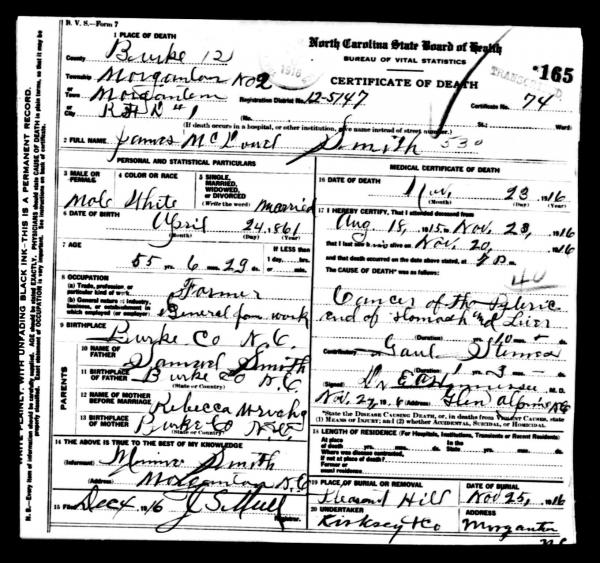 B. V. S.—Form 7
1 PLACE OF DEATH
County Burke 12
Township Morganton No 2
or
Town Morganton
or
City
North Carolina State Board of Health
BUREAU OF VITAL STATISTICS
CERTIFICATE OF DEATH
165
Registration District No. 12-5147
Certificate No. 74
(No. St.; Ward
(If death occurs in a hospital, or other institution, give name instead of street number.)
2 FULL NAME James McDowel Smith 530
PERSONAL AND STATISTICAL PARTICULARS
3 MALE OR FEMALE Male
4 COLOR OR RACE White
5 SINGLE, MARRIED, WIDOWED, OR DIVORCED (Write the word) Married
6 DATE OF BIRTH April 24, 1861
(Month) (Day) (Year)
7 AGE 55 yrs. 6 mos. 29 ds.
IF LESS than 1 day, hrs. min.
8 OCCUPATION
(a) Trade, profession, or particular kind of work. Farmer
(b) General nature of industry, business, or establishment in which employed (or employer) General farm work
9 BIRTHPLACE Burke Co N.C.
PARENTS
10 NAME OF FATHER Samuel Smith
11 BIRTHPLACE OF FATHER Burke Co N.C.
(State or Country)
12 NAME OF MOTHER BEFORE MARRIAGE Rebecca
13 BIRTHPLACE OF MOTHER Burke Co N.C.
(State or Country)
14 THE ABOVE IS TRUE TO THE BEST OF MY KNOWLEDGE
(Informant) Smith
(Address) Morganton N.C.
15 Filed Dec 4, 1916
Registrar.
MEDICAL CERTIFICATE OF DEATH
16 DATE OF DEATH
Nov 23 1916
(Month) (Day) (Year)
17 I HEREBY CERTIFY, That I attended deceased from
Aug 18, 1915 to Nov. 23, 1916
that I last saw him alive on Nov. 20, 1916
and that death occurred on the date above stated, at
The CAUSE OF DEATH* was as follows:
40
Cancer of the Pyloric
end of Stomach and Liver
(Duration) 10
Contributory Gaul Stones
(Duration) 3
(Signed) M. D.
Nov. 27, 1916 Glen Alpine N.C.
*State the DISEASE CAUSING DEATH, or, in deaths from VIOLENT CAUSES, state
(1) MEANS OF INJURY; and (2) whether ACCIDENTAL, SUICIDAL, or HOMICIDAL.
18 LENGTH OF RESIDENCE (For Hospitals, Institutions, Transients or Recent Residents)
At place of death
In the State
Where was disease contracted, if not at place of death?
Former or usual residence
19 PLACE OF BURIAL OR REMOVAL Pleasant Hill
DATE OF BURIAL Nov 25, 1916
20 UNDERTAKER Kirksey & Co
ADDRESS Morganton N.C.
WRITE PLAINLY, WITH UNFADING BLACK INK—THIS IS A PERMANENT RECORD.
N. B.—Every item of information should be carefully supplied. AGE should be stated EXACTLY. PHYSICIANS should state CAUSE OF DEATH in plain terms, so that it may be
properly classified. Exact statement of OCCUPATION is very important. See instructions on back of certificate.